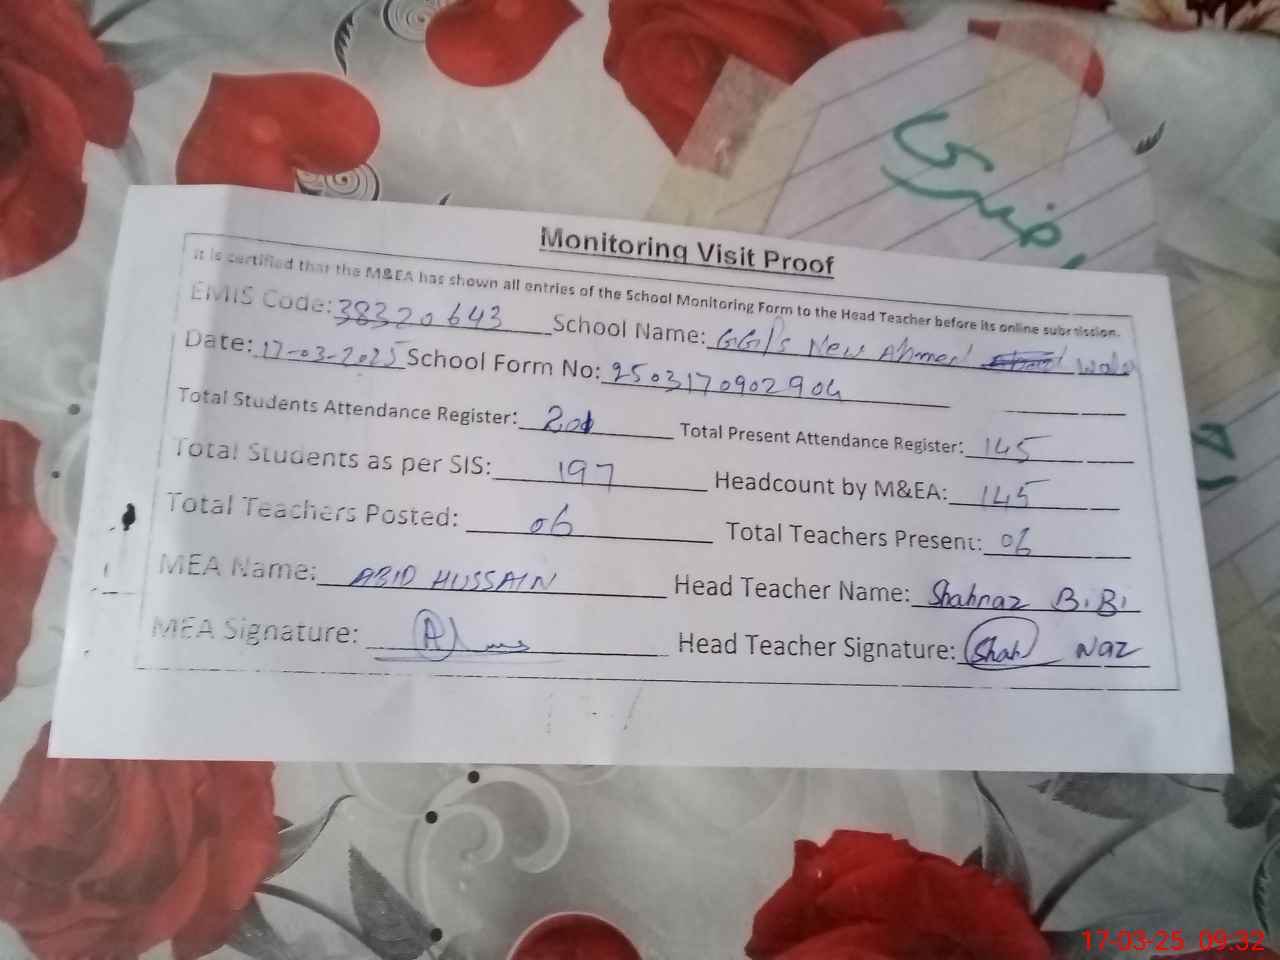 حاضری
Monitoring Visit Proof
It is certified that the M&EA has shown all entries of the School Monitoring Form to the Head Teacher before its online submission.
EMIS Code: 38320643 School Name: GGPS New Ahmed Wala
Date: 17-03-2025 School Form No: 2503170902904
Total Students Attendance Register: 201 Total Present Attendance Register: 145
Total Students as per SIS: 197 Headcount by M&EA: 145
Total Teachers Posted: 06 Total Teachers Present: 06
MEA Name: ABID HUSSAIN Head Teacher Name: Shahnaz BiBi
MEA Signature: Head Teacher Signature: Shah Naz
17-03-25 09:32